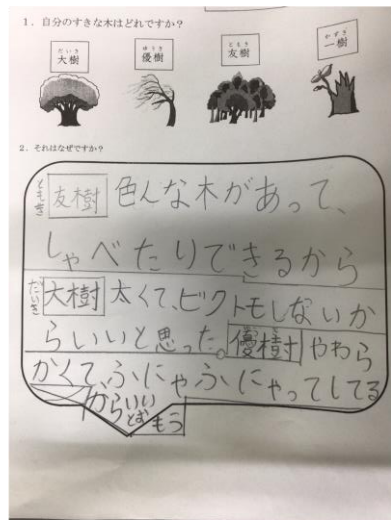 1．自分のすきな木はどれですか？
だいき
大樹
ゆうき
優樹
ともき
友樹
かずき
一樹
2．それはなぜですか？
ともき 友樹 色んな木があって、
しゃべたりできるから
だいき 大樹 太くて、ビクトモしないか
らいいと思った。優樹 やわら
かくて、ふにゃふにゃってしてる
からいい
とおもう